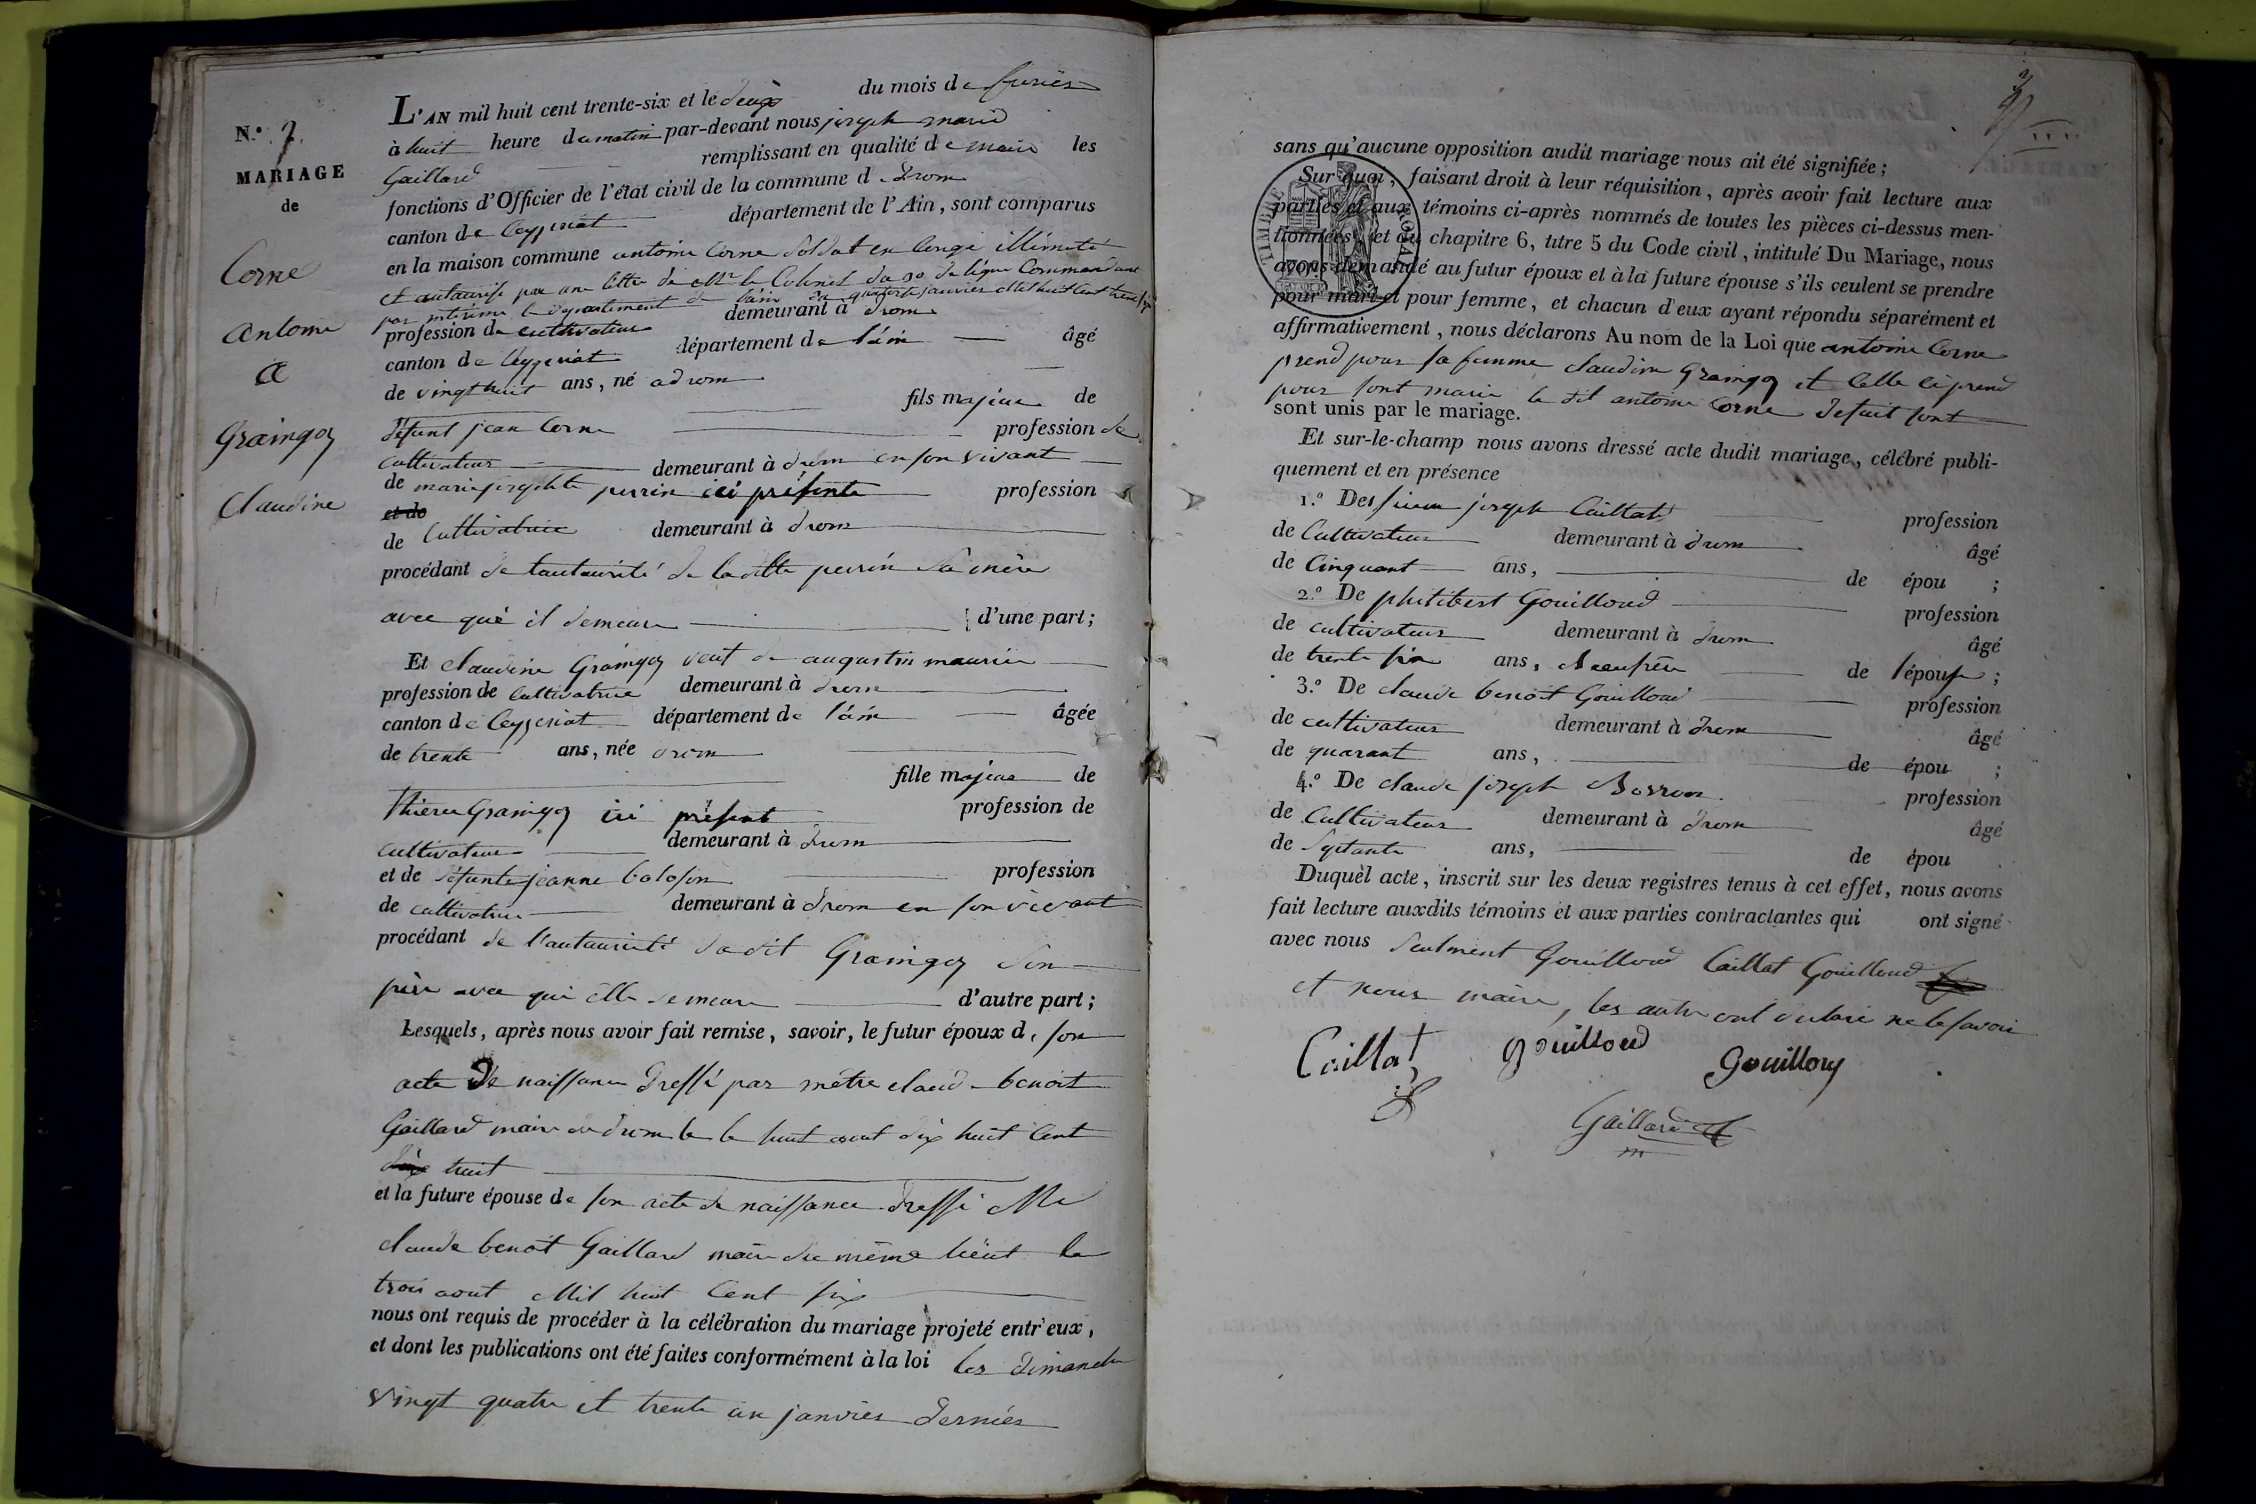 N.o 2.
MARIAGE
de
Corne
antoine
a
Graingoy
Claudine
L'AN mil huit cent trente-six et le deux du mois de fevrier
à huit heure du matin par-devant nous joseph marie
Gaillard remplissant en qualité de maire les
fonctions d'Officier de l'état civil de la commune d drom
canton de Ceyzeriat département de l'Ain, sont comparus
en la maison commune antoine Corne Soldat en Congé illimité
et autaurisé par une lettre de Mr le Colonel du de ligne Commandant
par interime le département de l'ain du quatorze janvier Mil huit Cent trente six
profession de cultivateur demeurant à drom
canton de Ceyzeriat département de l'ain âgé
de vingt huit ans, né a drom
fils majeur de
défunt jean Corne profession de
cultivateur demeurant à drom en son vivant
et de
de marie josephte perrin ici présente profession
de Cultivatrice demeurant à drom
procédant de l'autaurité de la ditte perrin Sa mère
avec qui il demeure d'une part;
Et claudine Graingoy veut de augustin maurier
profession de Cultivatrice demeurant à drom
canton de Ceyzeriat département de l'ain âgée
de trente ans, née drom
fille majeur de
thieru Graingoy ici présent profession de
cultivateur demeurant à drom
et de défunte jeanne balosin profession
de cultivatrice demeurant à drom en son vivant
procédant de l'autaurité du dit Graingoy Son
père avec qui elle demeure d'autre part;
Lesquels, après nous avoir fait remise, savoir, le futur époux de son
acte de naissance dressé par métre claude benoit
Gaillard maire de drom le le huit aout dix huit Cent
dix huit
et la future épouse de son acte de naissance dressé Me
claude benoit Gaillard maire du même lieut le
trois aout Mil huit Cent six
nous ont requis de procéder à la célébration du mariage projeté entr'eux,
et dont les publications ont été faites conformément à la loi les dimanche
vingt quatre et trente un janvier dernier
sans qu'aucune opposition audit mariage nous ait été signifiée;
Sur quoi, faisant droit à leur réquisition, après avoir fait lecture aux
parties et aux témoins ci-après nommés de toutes les pièces ci-dessus men-
tionnées, et du chapitre 6, titre 5 du Code civil, intitulé Du Mariage, nous
avons demandé au futur époux et à la future épouse s'ils veulent se prendre
pour mari et pour femme, et chacun d'eux ayant répondu séparément et
affirmativement, nous déclarons Au nom de la Loi que antoine Corne
prend pour sa femme claudine Graingoy et Celle ci prend
pour sont marie le dit antoine Corne defait sont
sont unis par le mariage.
Et sur-le-champ nous avons dressé acte dudit mariage, célébré publi-
quement et en présence
1.o Des sieur joseph Caillat profession
de Cultivateur demeurant à drom âgé
de Cinquant ans, de épou ;
2.o De philibert Gouilloud profession
de cultivateur demeurant à drom âgé
de trente six ans, Beaufrère de l'épouse ;
3.o De claude benoit Gouilloud profession
de cultivateur demeurant à drom âgé
de quarant ans, de épou ;
4.o De claude joseph Borron profession
de Cultivateur demeurant à drom âgé
de Septante ans, de épou
Duquel acte, inscrit sur les deux registres tenus à cet effet, nous avons
fait lecture auxdits témoins et aux parties contractantes qui ont signé
avec nous Seulment Gouilloud Caillat Gouilloud
et nous maire, les autre ont déclaré ne le savoir
Caillat Gouilloud Gouilloud
Gaillard
m
TIMBRE ROYAL